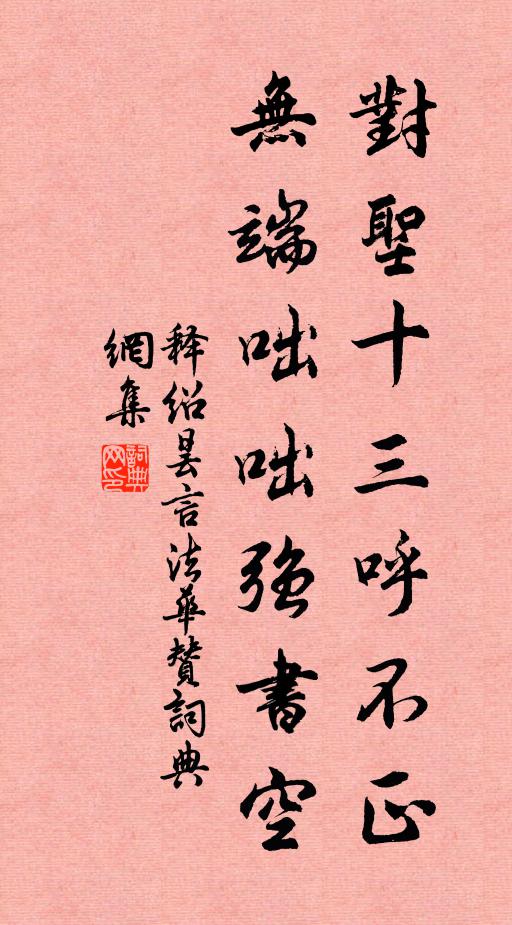 對聖十三呼不正
無端咄咄強書空
释紹曇言法華贊詞典
網集
詞典網印